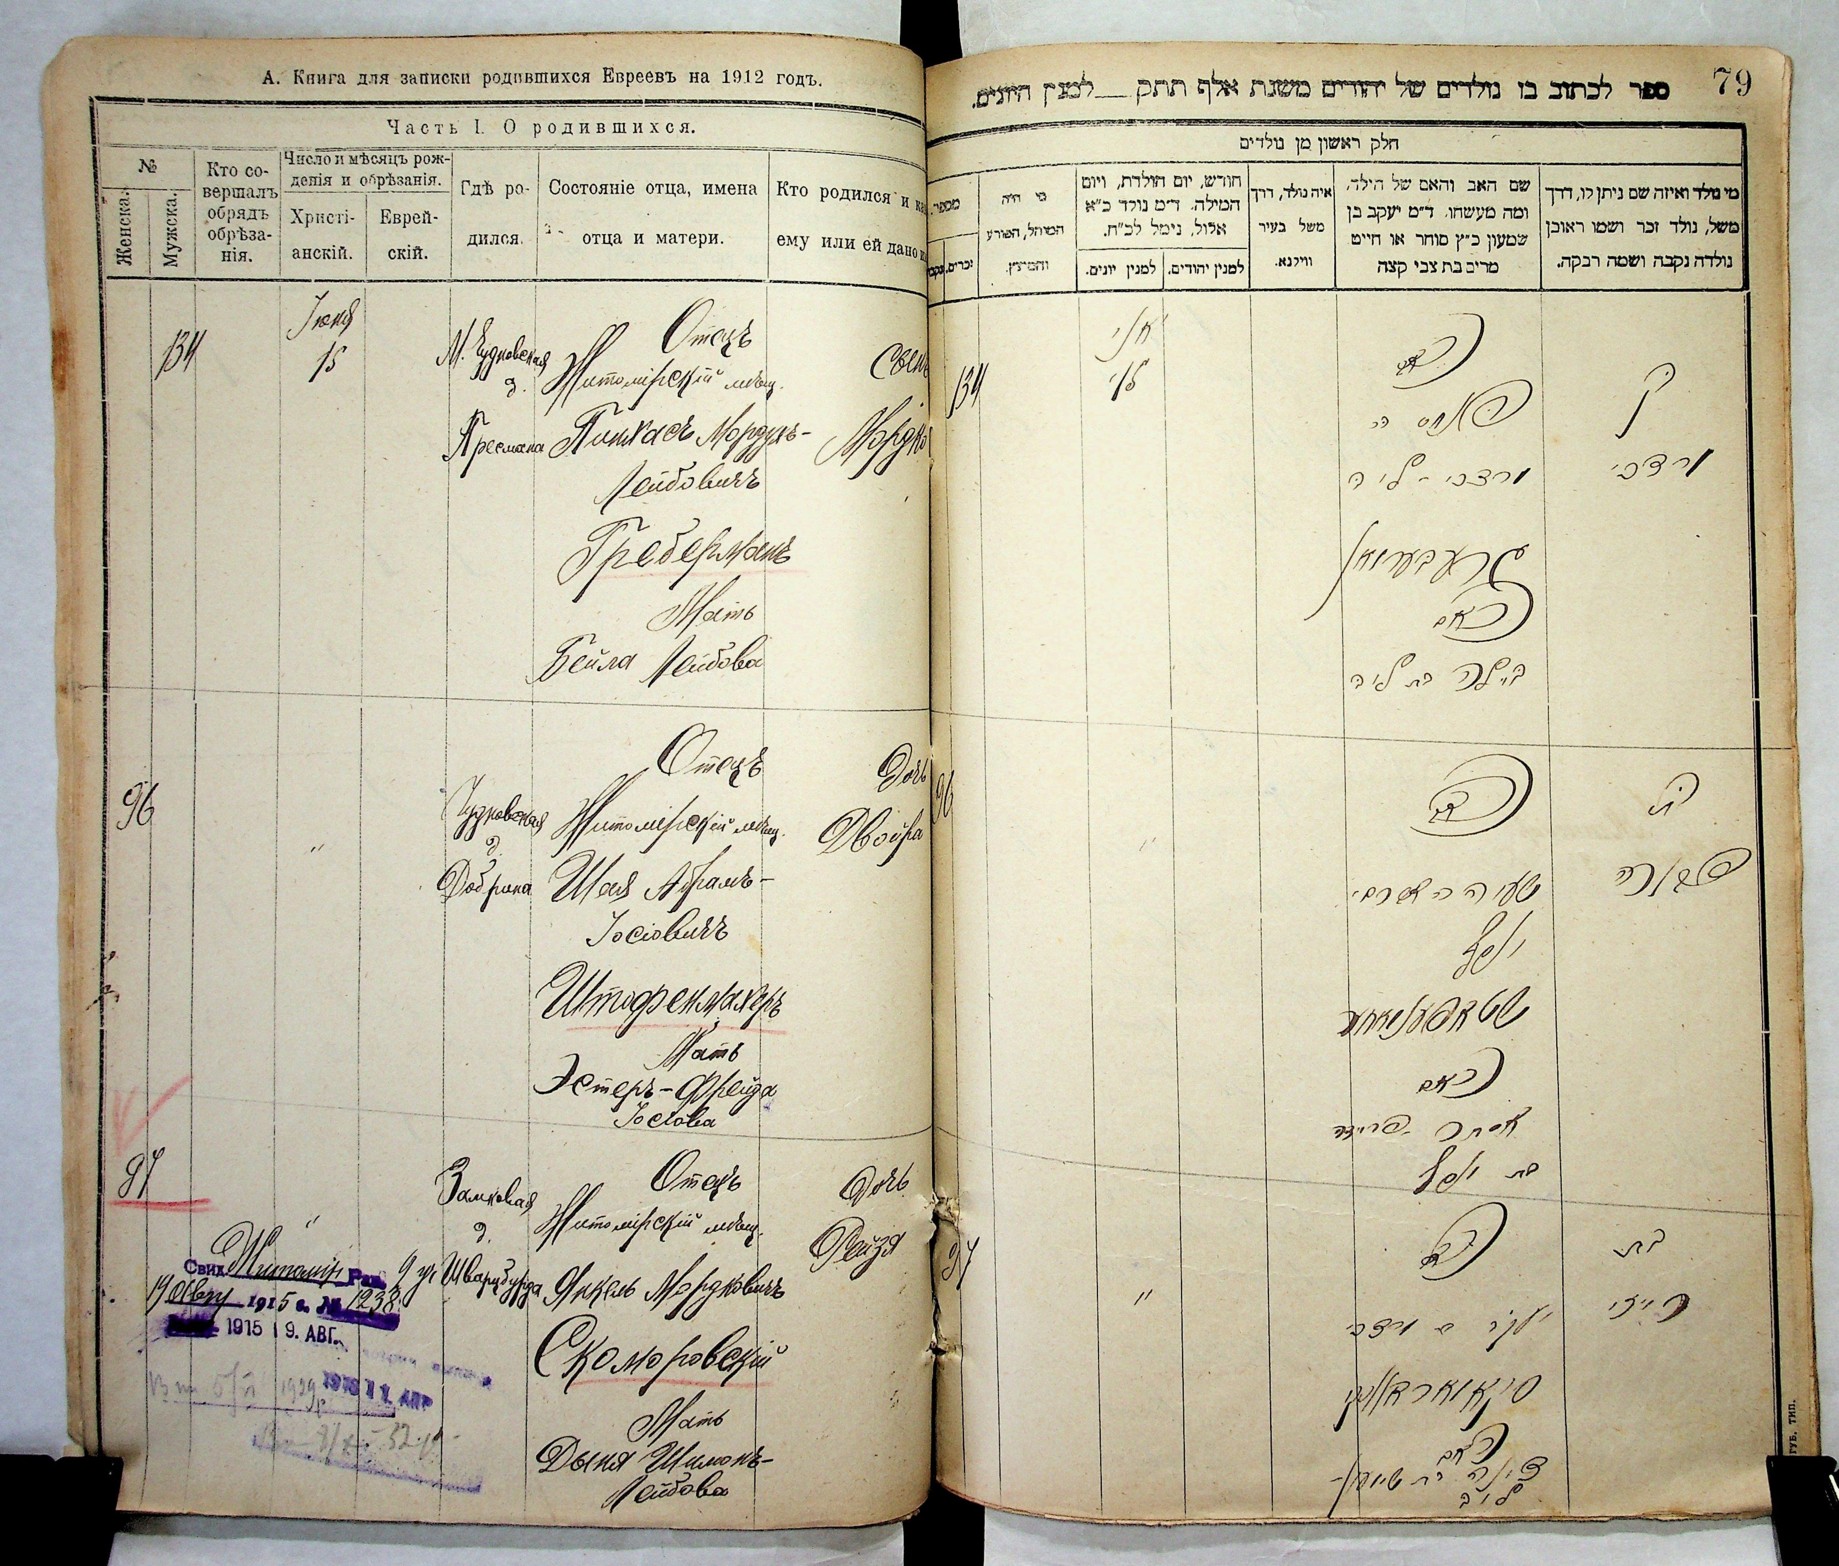 А. Книга для записки родившихся Евреевъ на 1912 годъ.
Часть I. О родившихся.
№
Женска.
Мужска.
Кто со-
вершалъ
обрядъ
обрѣза-
нія.
Число и мѣсяцъ рож-
денія и обрѣзанія.
Христі-
анскій.
Еврей-
скій.
Гдѣ ро-
дился.
Состояніе отца, имена
отца и матери.
Кто родился и
ему или ей дано
134
Іюня
15
М. Чудновская
д.
Пресмана
Отецъ
Житомірскій мѣщ.
Пинхасъ Мордухъ-
Лейбовичъ
Греберманъ
Мать
Бейла Лейбова
Сынъ
Мордко
96
"
Чудновская
д.
Добрина
Отецъ
Житомірскій мѣщ.
Шая Абрамъ-
Іосіовичъ
Штофенмахеръ
Мать
Эстеръ-Фрейда
Іосіова
Дочь
Двойра
97
"
Замковая
д.
Шварцбурда
Отецъ
Житомірскій мѣщ.
Янкель Мордковичъ
Скоморовскій
Мать
Дыня Шимонъ-
Лейбова
Дочь
Рейзя
Свид. Житомір Рав.
19 Авгу 1915 г. № 1238
1915 19. АВГ.
1929
ספר לכתוב בו נולדים של יהודים משנת אלף תתק __ למנין היונים.
79
חלק ראשון מן נולדים
מספר.
זכרים.
מי היה
המוהל, הפורע
והמוצץ.
חודש, יום הולדת, ויום
המילה. ד״מ נולד כ״א
אלול, נימל לכ״ח.
למנין יונים.
למנין יהודים.
איה נולד, דרך
משל בעיר
ווילנא.
שם האב והאם של הילד,
ומה מעשהו. ד״מ יעקב בן
שמעון כ״ץ סוחר או חייט
מרים בת צבי קצה
מי נולד ואיזה שם ניתן לו, דרך
משל, נולד זכר ושמו ראובן
נולדה נקבה ושמה רבקה.
134
יוני
15
האב
פנחס בר
מרדכי - ליב
גרעבערמאן
האם
ביילה בת ליב
בן
מרדכי
96
"
האב
ישעיה בר אברהם
יוסף
האם
אסתר - פריידה
בת יוסף
בת
דבורה
97
"
האב
יעקב בר מרדכי
האם
דינה בת שמעון-
ליב
בת
רייזי
ГУБ. ТИП.